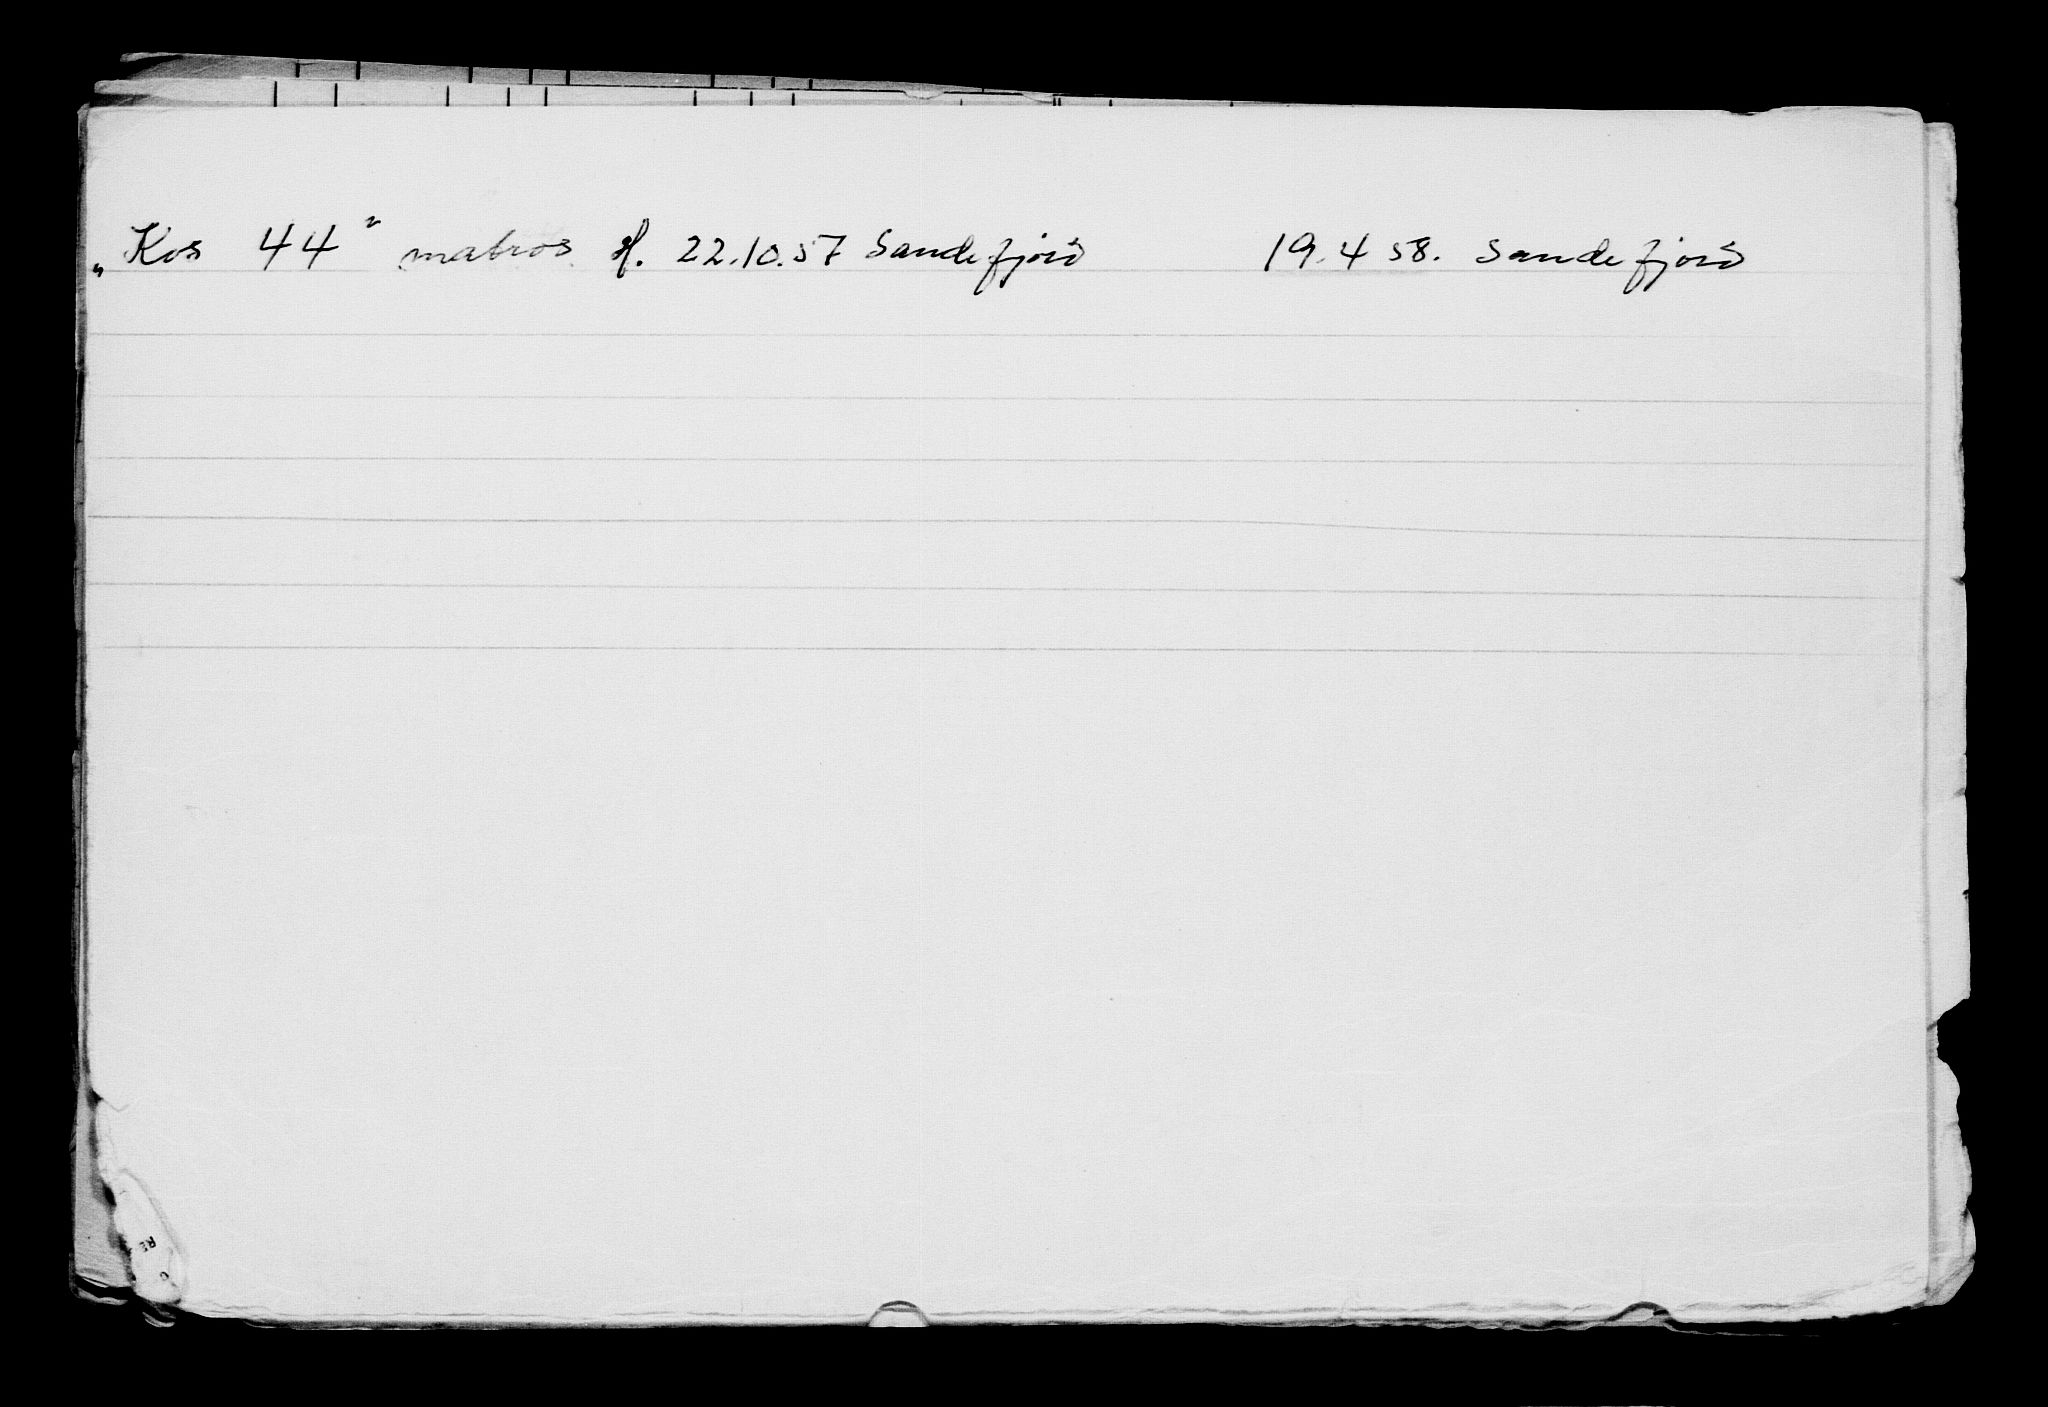 „Kos 44” matros sf. 22.10.57 Sandefjord 19.4 58. Sandefjord